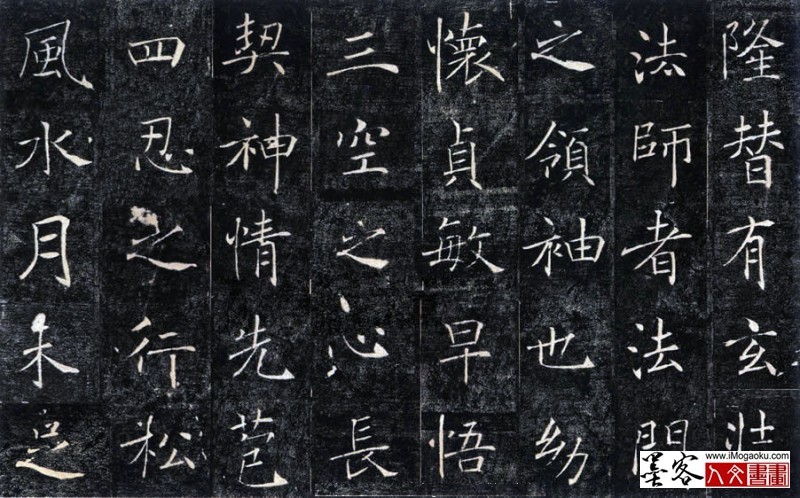 隆替有玄奘
法師者法門
之領袖也幼
懷貞敏早悟
三空之心長
契神情先苞
四忍之行松
風水月未足
墨客
www.iMogaoku.com
人文書畫